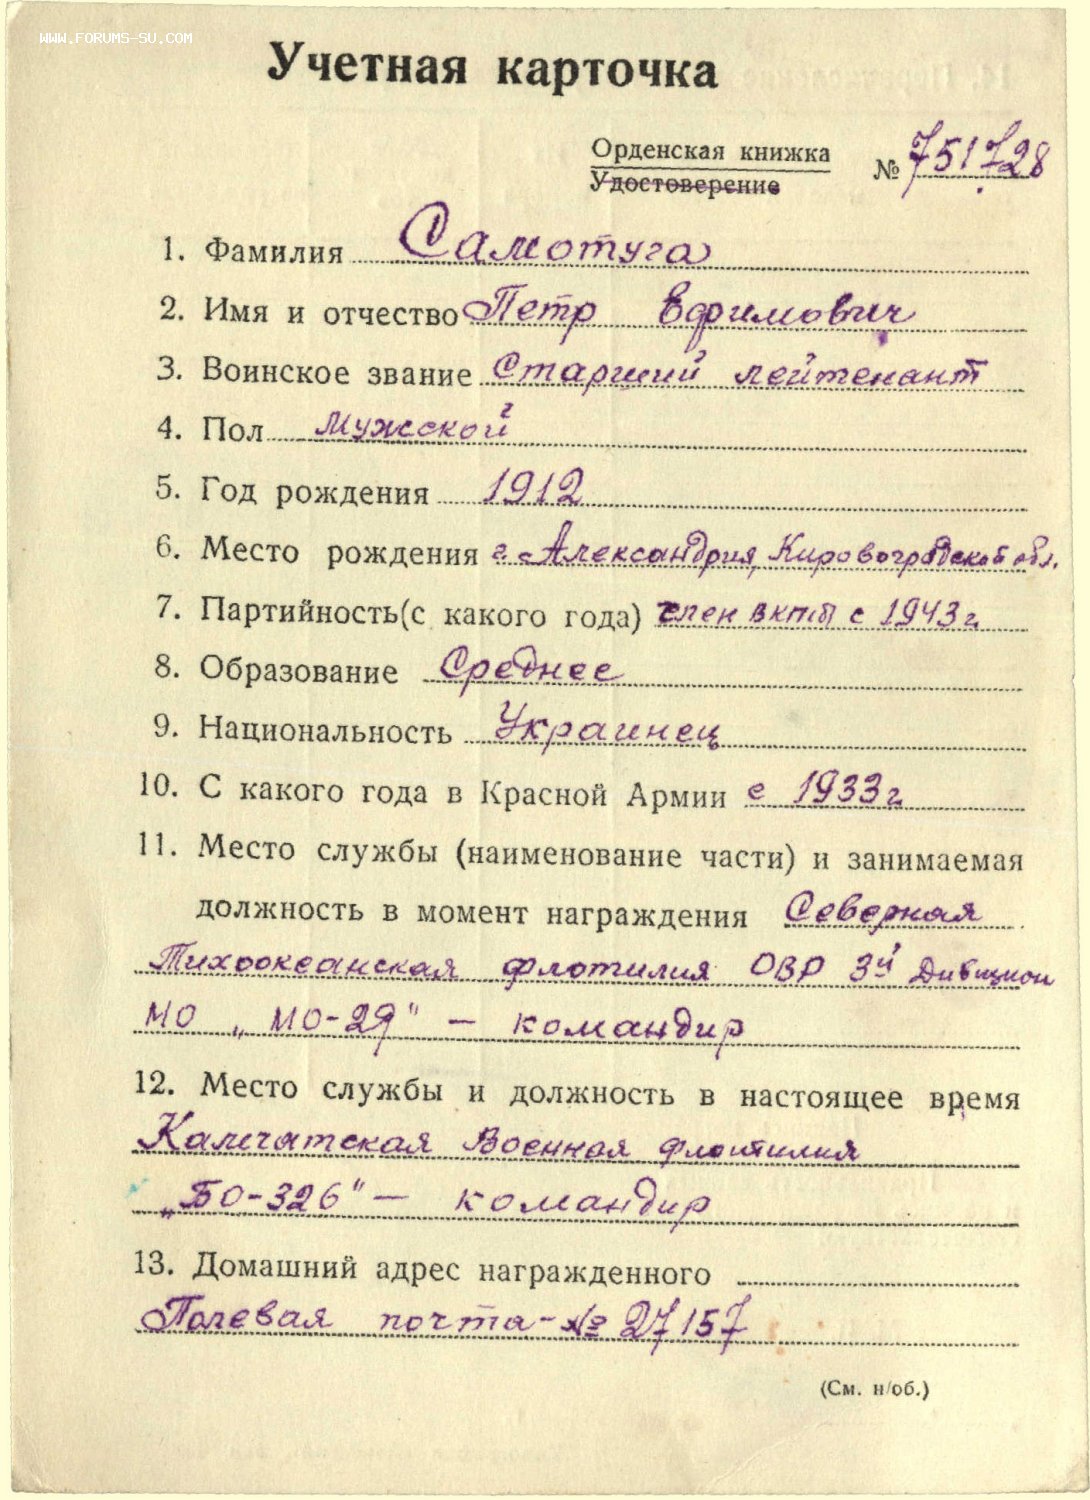 WWW.FORUMS-SU.COM
Учетная карточка
Орденская книжка
Удостоверение
№ 751728
1. Фамилия Самотуга
2. Имя и отчество Петр Ефимович
3. Воинское звание Старший лейтенант
4. Пол Мужской
5. Год рождения 1912
6. Место рождения г. Александрия, Кировоградской обл.
7. Партийность(с какого года) член ВКПб с 1943 г
8. Образование Среднее
9. Национальность Украинец
10. С какого года в Красной Армии с 1933 г
11. Место службы (наименование части) и занимаемая
должность в момент награждения Северная
Тихоокеанская флотилия ОВР 3й Дивизион
МО „МО-29" — командир
12. Место службы и должность в настоящее время
Камчатская Военная флотилия
„БО-326" — командир
13. Домашний адрес награжденного
Полевая почта - № 27157
(См. н/об.)